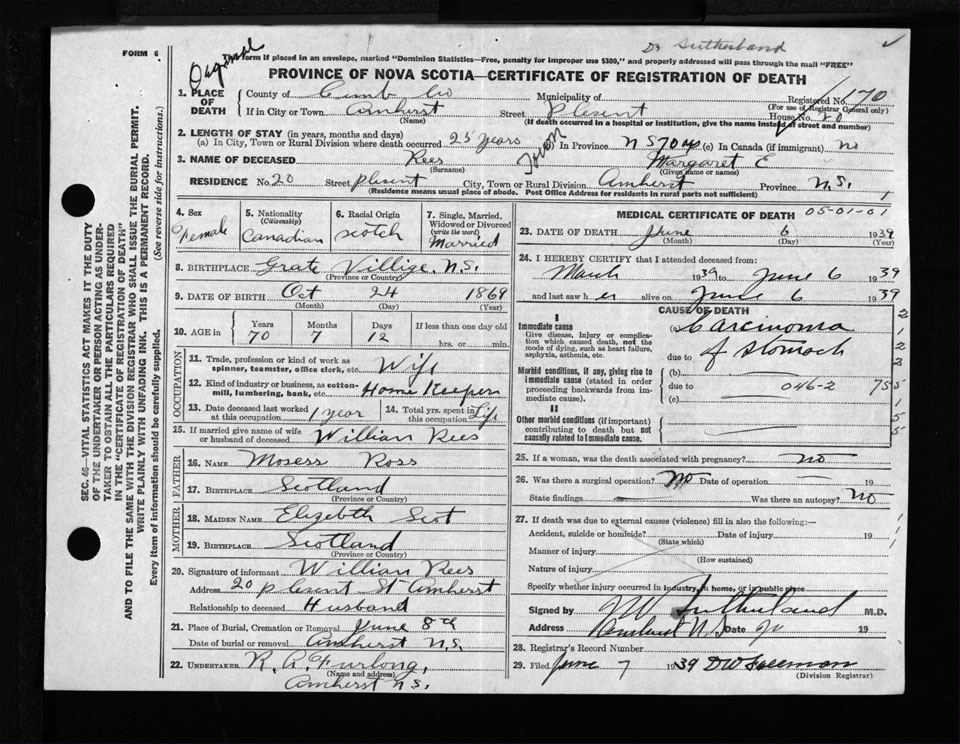 FORM 6
Dr Sutherland
form if placed in an envelope, marked "Dominion Statistics—Free, penalty for improper use $300," and properly addressed will pass through the mail "FREE"
PROVINCE OF NOVA SCOTIA—CERTIFICATE OF REGISTRATION OF DEATH
SEC. 46—VITAL STATISTICS ACT MAKES IT THE DUTY
OF THE UNDERTAKER OR PERSON ACTING AS UNDER-
TAKER TO OBTAIN ALL THE PARTICULARS REQUIRED
IN THE "CERTIFICATE OF REGISTRATION OF DEATH"
AND TO FILE THE SAME WITH THE DIVISION REGISTRAR WHO SHALL ISSUE THE BURIAL PERMIT.
WRITE PLAINLY WITH UNFADING INK. THIS IS A PERMANENT RECORD.
Every item of information should be carefully supplied. (See reverse side for instructions.)
1. PLACE OF DEATH County of Cumb Co Municipality of Registered No. 170
(For use of Registrar General only)
If in City or Town Amherst Street Plesent House No. 20
(Name) (If death occurred in a hospital or institution, give the name instead of street and number)
2. LENGTH OF STAY (in years, months and days)
(a) In City, Town or Rural Division where death occurred 25 years In Province N S 70 (c) In Canada (if immigrant) no
3. NAME OF DECEASED Rees Margaret E
(Surname) (Given name or names)
RESIDENCE No. 20 Street plesent City, Town or Rural Division Amherst Province N.S.
(Residence means usual place of abode. Post Office Address for Residents rural parts not sufficient) 1
4. Sex Female
5. Nationality (Citizenship) Canadian
6. Racial Origin Scotch
7. Single, Married, Widowed or Divorced (write the word) Married
8. BIRTHPLACE Grate Villige. N.S.
(Province or Country)
9. DATE OF BIRTH Oct 24 1869
(Month) (Day) (Year)
10. AGE in Years 70 Months 7 Days 12 If less than one day old
hrs. or min.
OCCUPATION
11. Trade, profession or kind of work as spinner, teamster, office clerk, etc. Wife
12. Kind of industry or business, as cotton-mill, lumbering, bank, etc. Home Keeper
13. Date deceased last worked at this occupation 1 year 14. Total yrs. spent in this occupation Life
15. If married give name of wife or husband of deceased Willian Rees
FATHER
16. NAME Mosess Ross
17. BIRTHPLACE Scotland
(Province or Country)
MOTHER
18. MAIDEN NAME Elizebth Scot
19. BIRTHPLACE Scotland
(Province or Country)
20. Signature of informant Willian Rees
Address 20 plesent St Amherst
Relationship to deceased Husband
21. Place of Burial, Cremation or Removal June 8th
Date of burial or removal Amherst N.S.
22. UNDERTAKER R. A. Furlong,
(Name and address)
Amherst N.S.
MEDICAL CERTIFICATE OF DEATH 05-01-01
23. DATE OF DEATH June 6 1939
(Month) (Day) (Year)
24. I HEREBY CERTIFY that I attended deceased from:
March 1939 to June 6 1939
and last saw her alive on June 6 1939
CAUSE OF DEATH
I
Immediate cause (a) Carcinoma
Give disease, injury or complication which caused death, not the mode of dying, such as heart failure, asphyxia, asthenia, etc.
due to of stomach
Morbid conditions, if any, giving rise to immediate cause (stated in order proceeding backwards from immediate cause).
(b)
due to 046-2 75
(c)
II
Other morbid conditions (if important) contributing to death but not causally related to immediate cause.
25. If a woman, was the death associated with pregnancy? no
26. Was there a surgical operation? No Date of operation 19
State findings Was there an autopsy? No
27. If death was due to external causes (violence) fill in also the following:—
Accident, suicide or homicide? Date of injury 19
(State which)
Manner of injury
(How sustained)
Nature of injury
Specify whether injury occurred in Industry, in home, or in public place
Signed by Sutherland M.D.
Address Amherst N.S Date 19
28. Registrar's Record Number
29. Filed June 7 1939 DW Freeman
(Division Registrar)